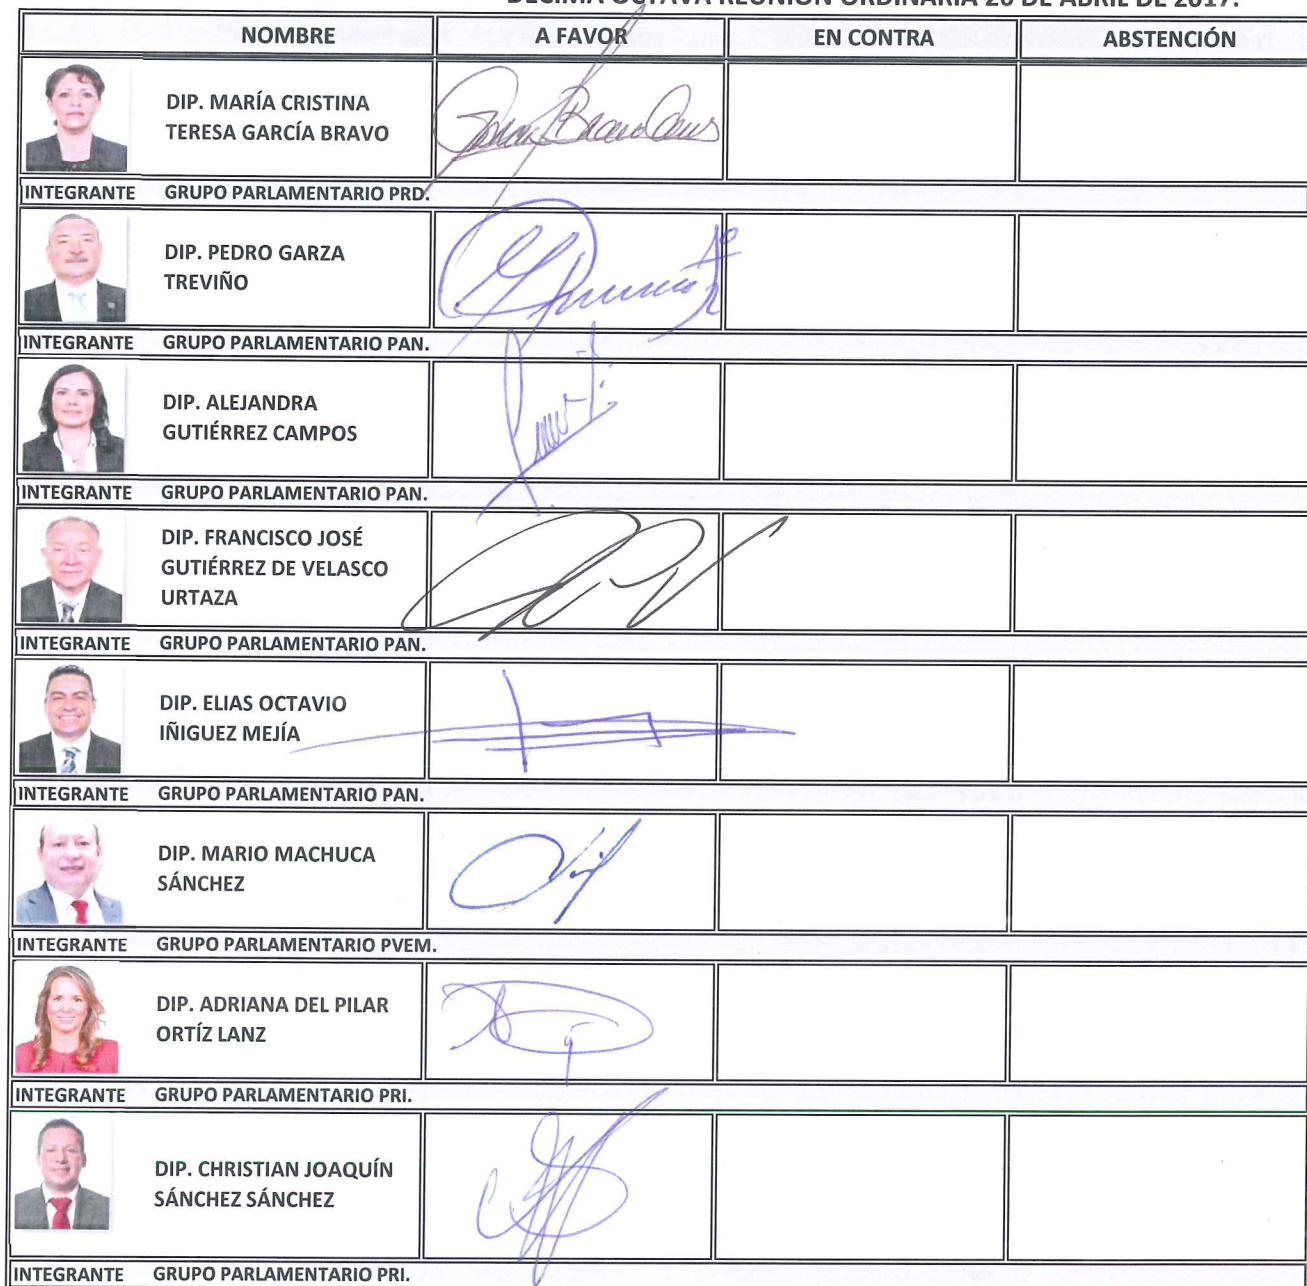 DÉCIMA OCTAVA REUNIÓN ORDINARIA 26 DE ABRIL DE 2017.
NOMBRE A FAVOR EN CONTRA ABSTENCIÓN
DIP. MARÍA CRISTINA
TERESA GARCÍA BRAVO
INTEGRANTE GRUPO PARLAMENTARIO PRD.
DIP. PEDRO GARZA
TREVIÑO
INTEGRANTE GRUPO PARLAMENTARIO PAN.
DIP. ALEJANDRA
GUTIÉRREZ CAMPOS
INTEGRANTE GRUPO PARLAMENTARIO PAN.
DIP. FRANCISCO JOSÉ
GUTIÉRREZ DE VELASCO
URTAZA
INTEGRANTE GRUPO PARLAMENTARIO PAN.
DIP. ELIAS OCTAVIO
IÑIGUEZ MEJÍA
INTEGRANTE GRUPO PARLAMENTARIO PAN.
DIP. MARIO MACHUCA
SÁNCHEZ
INTEGRANTE GRUPO PARLAMENTARIO PVEM.
DIP. ADRIANA DEL PILAR
ORTÍZ LANZ
INTEGRANTE GRUPO PARLAMENTARIO PRI.
DIP. CHRISTIAN JOAQUÍN
SÁNCHEZ SÁNCHEZ
INTEGRANTE GRUPO PARLAMENTARIO PRI.